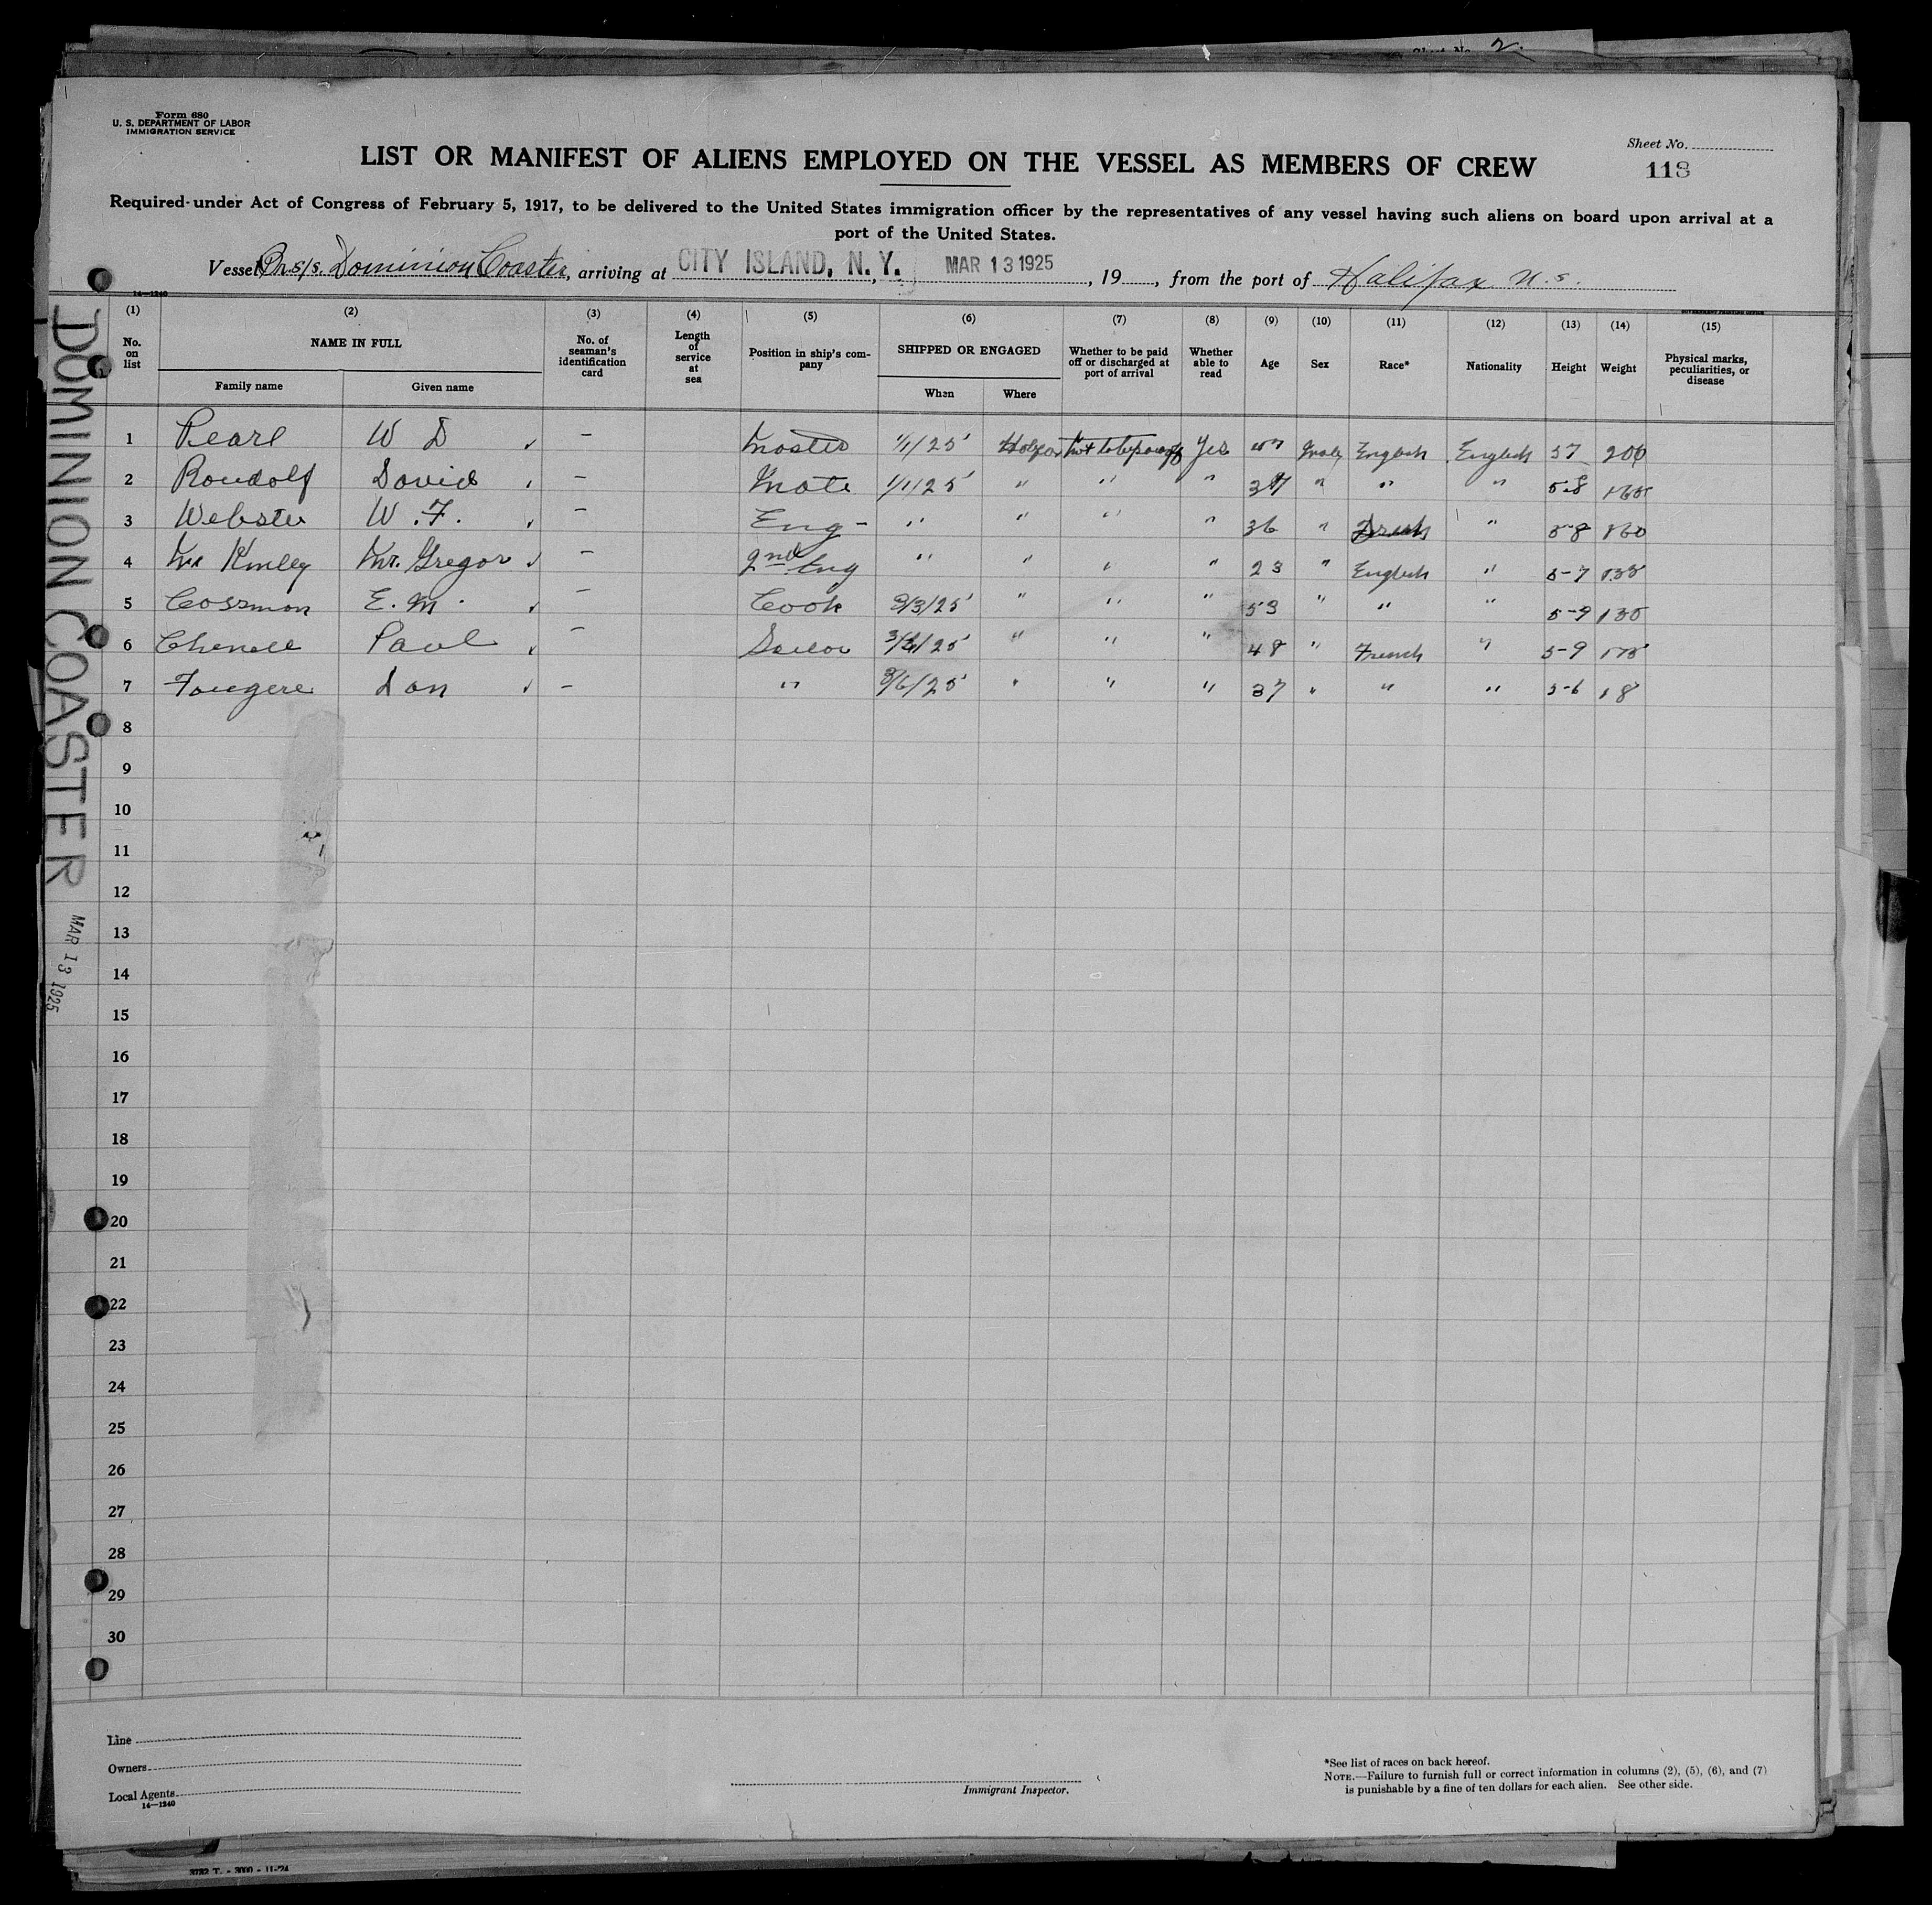 Sheet No. 2
Form 680
U. S. DEPARTMENT OF LABOR
IMMIGRATION SERVICE
Sheet No.
118
LIST OR MANIFEST OF ALIENS EMPLOYED ON THE VESSEL AS MEMBERS OF CREW
Required under Act of Congress of February 5, 1917, to be delivered to the United States immigration officer by the representatives of any vessel having such aliens on board upon arrival at a
port of the United States.
Vessel Br. s/s. Dominion Coaster, arriving at CITY ISLAND, N. Y., MAR 13 1925, 19, from the port of Halifax N.S.
14—1240
(1) (2) (3) (4) (5) (6) (7) (8) (9) (10) (11) (12) (13) (14) (15)
No. on list NAME IN FULL No. of seaman's identification card Length of service at sea Position in ship's company SHIPPED OR ENGAGED Whether to be paid off or discharged at port of arrival Whether able to read Age Sex Race* Nationality Height Weight Physical marks, peculiarities, or disease
Family name Given name When Where
1 Pearl W D — Master 1/1/25 Halifax Not to be paid off Yes 47 Male English English 57 200
2 Roudolf David — Mate 1/1/25 " " " 37 " " " 5-8 165
3 Webster W. F. — Eng - " " " " 36 " " 5-8 160
4 Mc Kinley Mr. Gregor — 2nd Eng " " " " 23 " English " 5-7
5 Cossman E. M. — Cook 3/3/25 " " " 53 " " " 5-9 130
6 Chenell Paul — Sailor 3/6/25 " " " 48 " French " 5-9 175
7 Fougere Dan — " 3/6/25 " " " 37 " " " 5-6
8
9
10
11
12
13
14
15
16
17
18
19
20
21
22
23
24
25
26
27
28
29
30
DOMINION COASTER MAR 13 1925
Line
Owners
Local Agents
14—1240
Immigrant Inspector.
*See list of races on back hereof.
NOTE.—Failure to furnish full or correct information in columns (2), (5), (6), and (7)
is punishable by a fine of ten dollars for each alien. See other side.
3782 T. - 3000 - 11-'24